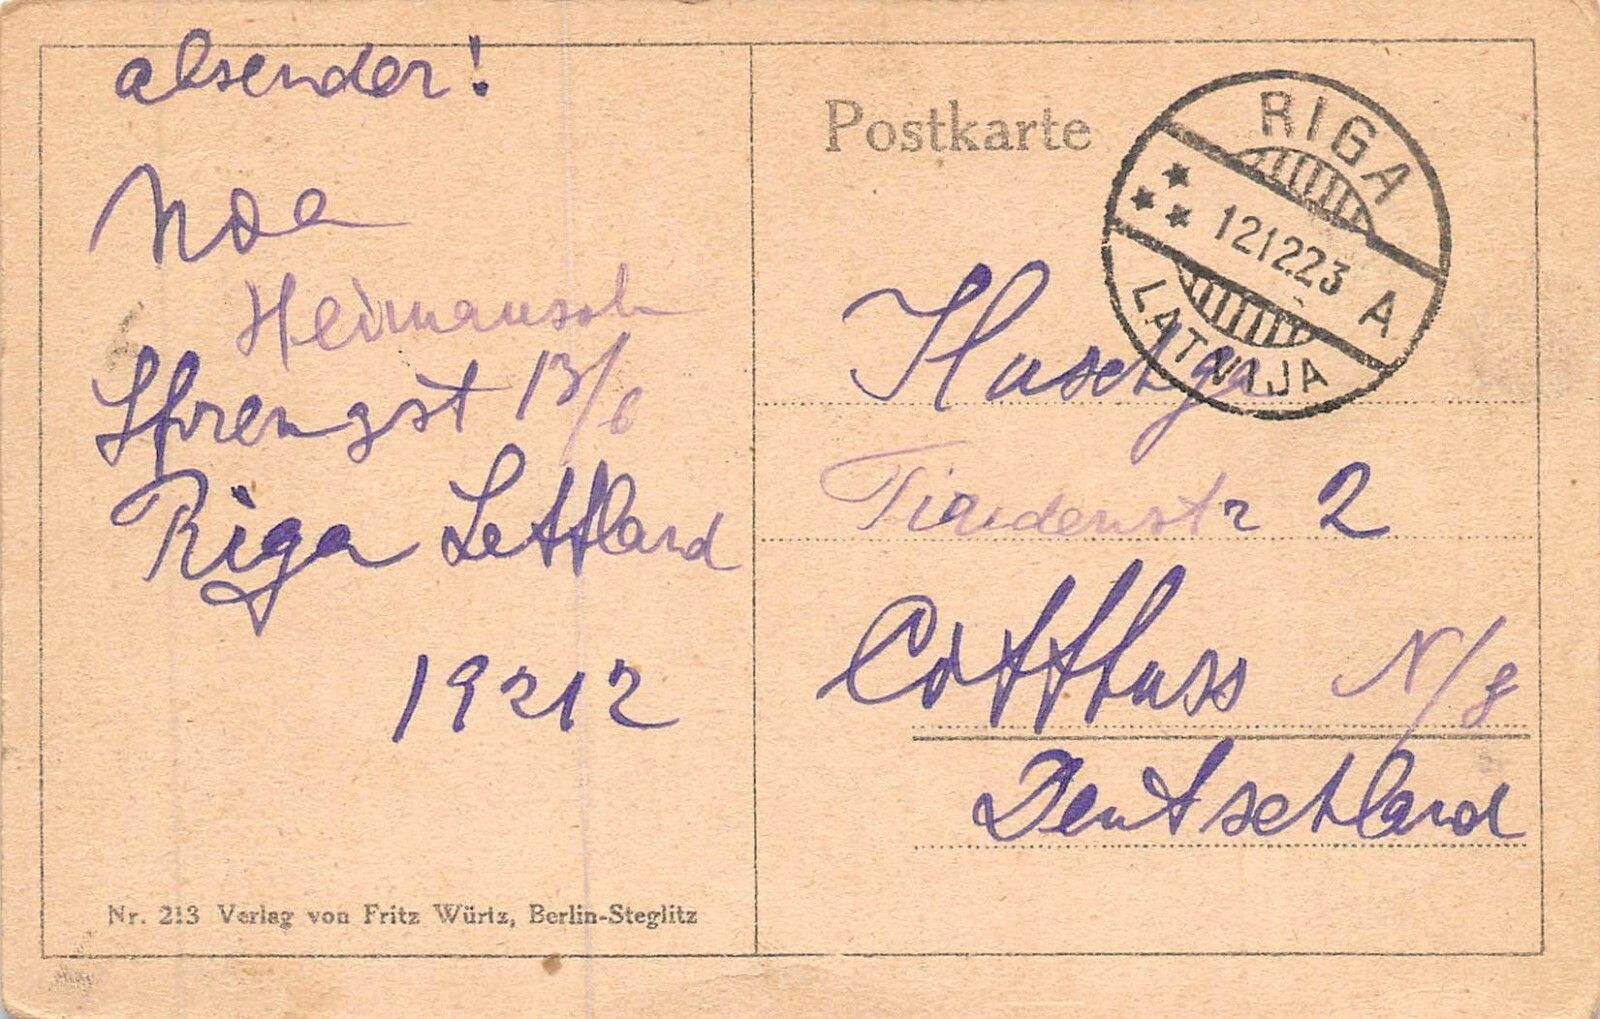 absender!
Noa
Heimansoh
Sprengst 13/6
Riga Lettland
19212
Nr. 213 Verlag von Fritz Würtz, Berlin-Steglitz
Postkarte
RIGA
12.12.23 A
LATVIJA
2
Cottbuss N/g
Deutschland